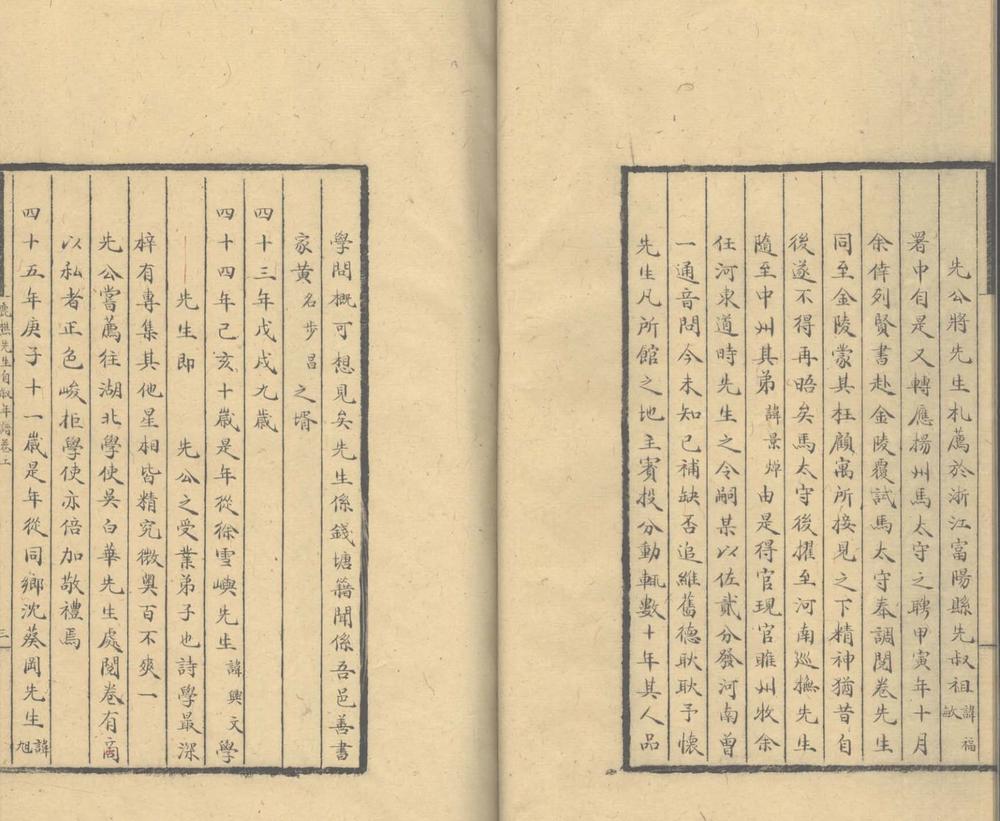 先公將先生札薦於浙江富陽縣先叔祖諱福敏
署中自是又轉應揚州馬太守之聘甲寅年十月
余倖列賢書赴金陵覆試馬太守奉調閱卷先生
同至金陵蒙其枉顧寓所接見之下精神猶昔自
後遂不得再晤矣馬太守後擢至河南巡撫先生
隨至中州其弟諱景焯由是得官現官睢州牧余
任河東道時先生之令嗣某以佐貳分發河南曾
一通音問今未知已補缺否追維舊德耿耿予懷
先生凡所館之地主賓投分動輒數十年其人品
學問概可想見矣先生係錢塘籍聞係吾邑善書
家黃名步昌之壻
四十三年戊戌九歲
四十四年己亥十歲是年從徐雪嶼先生諱興文學
先生即 先公之受業弟子也詩學最深
梓有專集其他星相皆精究微奧百不爽一
先公嘗薦往湖北學使吳白華先生處閱卷有商
以私者正色峻拒學使亦倍加敬禮焉
四十五年庚子十一歲是年從同鄉沈葵岡先生諱旭
鹿樵先生自敘年譜卷上
三